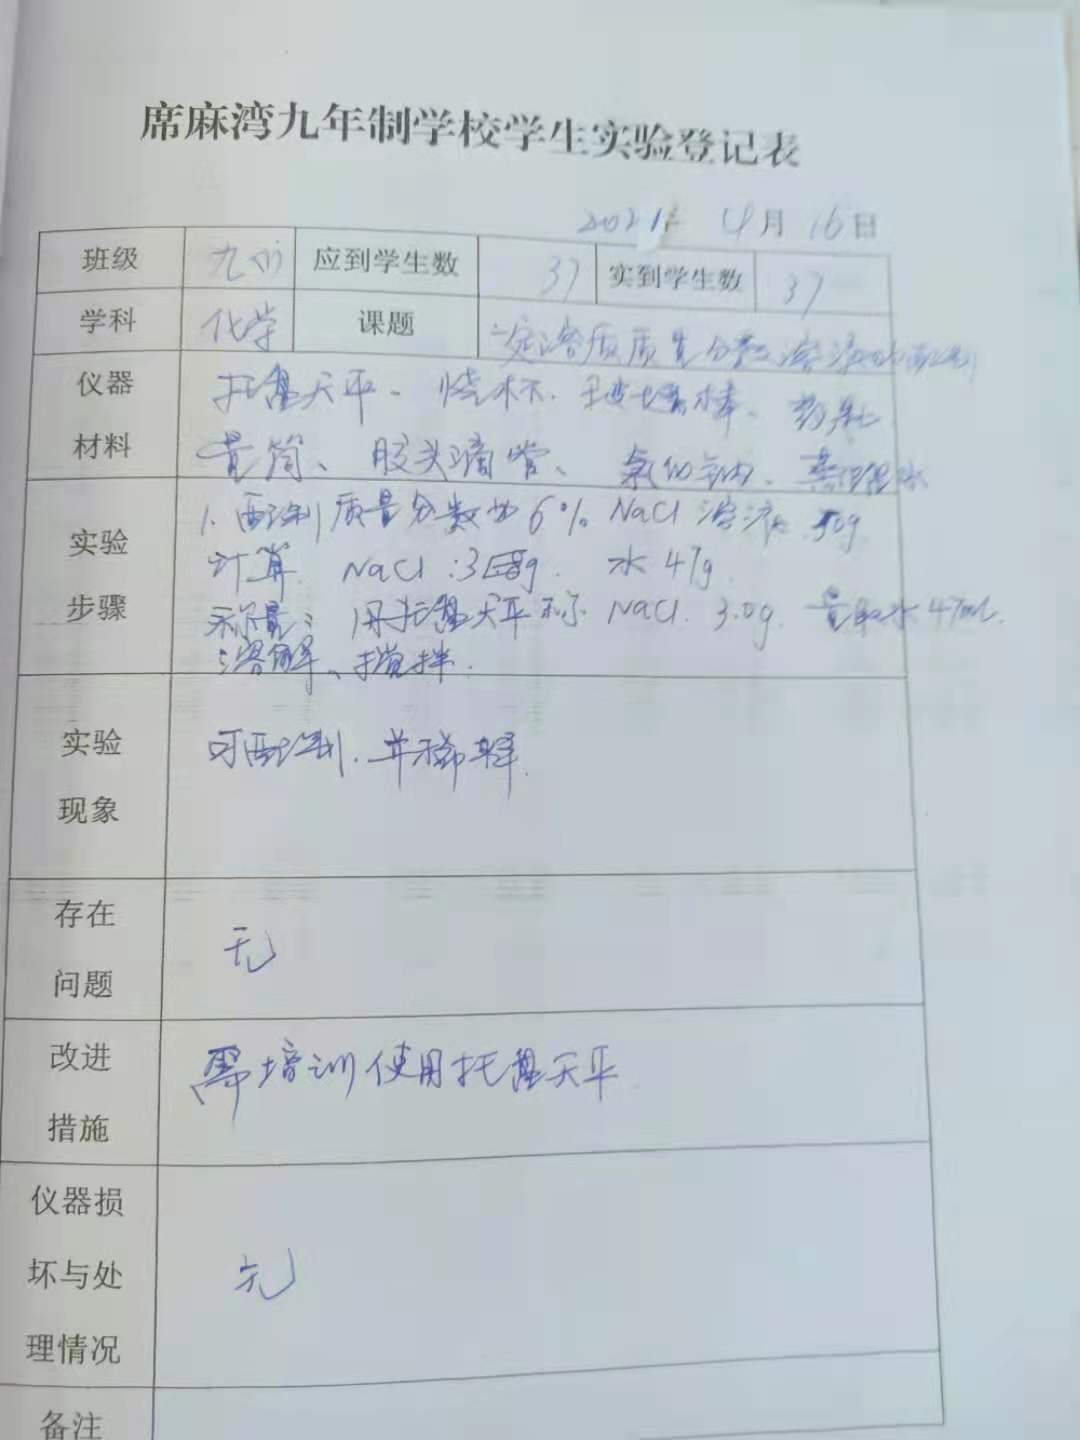 席麻湾九年制学校学生实验登记表
2021年 4月 16日
班级 九(1) 应到学生数 37 实到学生数 37
学科 化学 课题 一定溶质质量分数溶液的配制
仪器材料 托盘天平、烧杯、玻璃棒、药匙
量筒、胶头滴管、氯化钠、蒸馏水
实验步骤 1.配制质量分数为6% NaCl溶液50g
计算 NaCl:3g. 水47g.
称量:用托盘天平称NaCl 3.0g. 量取水47mL.
溶解、搅拌.
实验现象 可配制.并稀释.
存在问题 无
改进措施 需培训使用托盘天平
仪器损坏与处理情况 无
备注